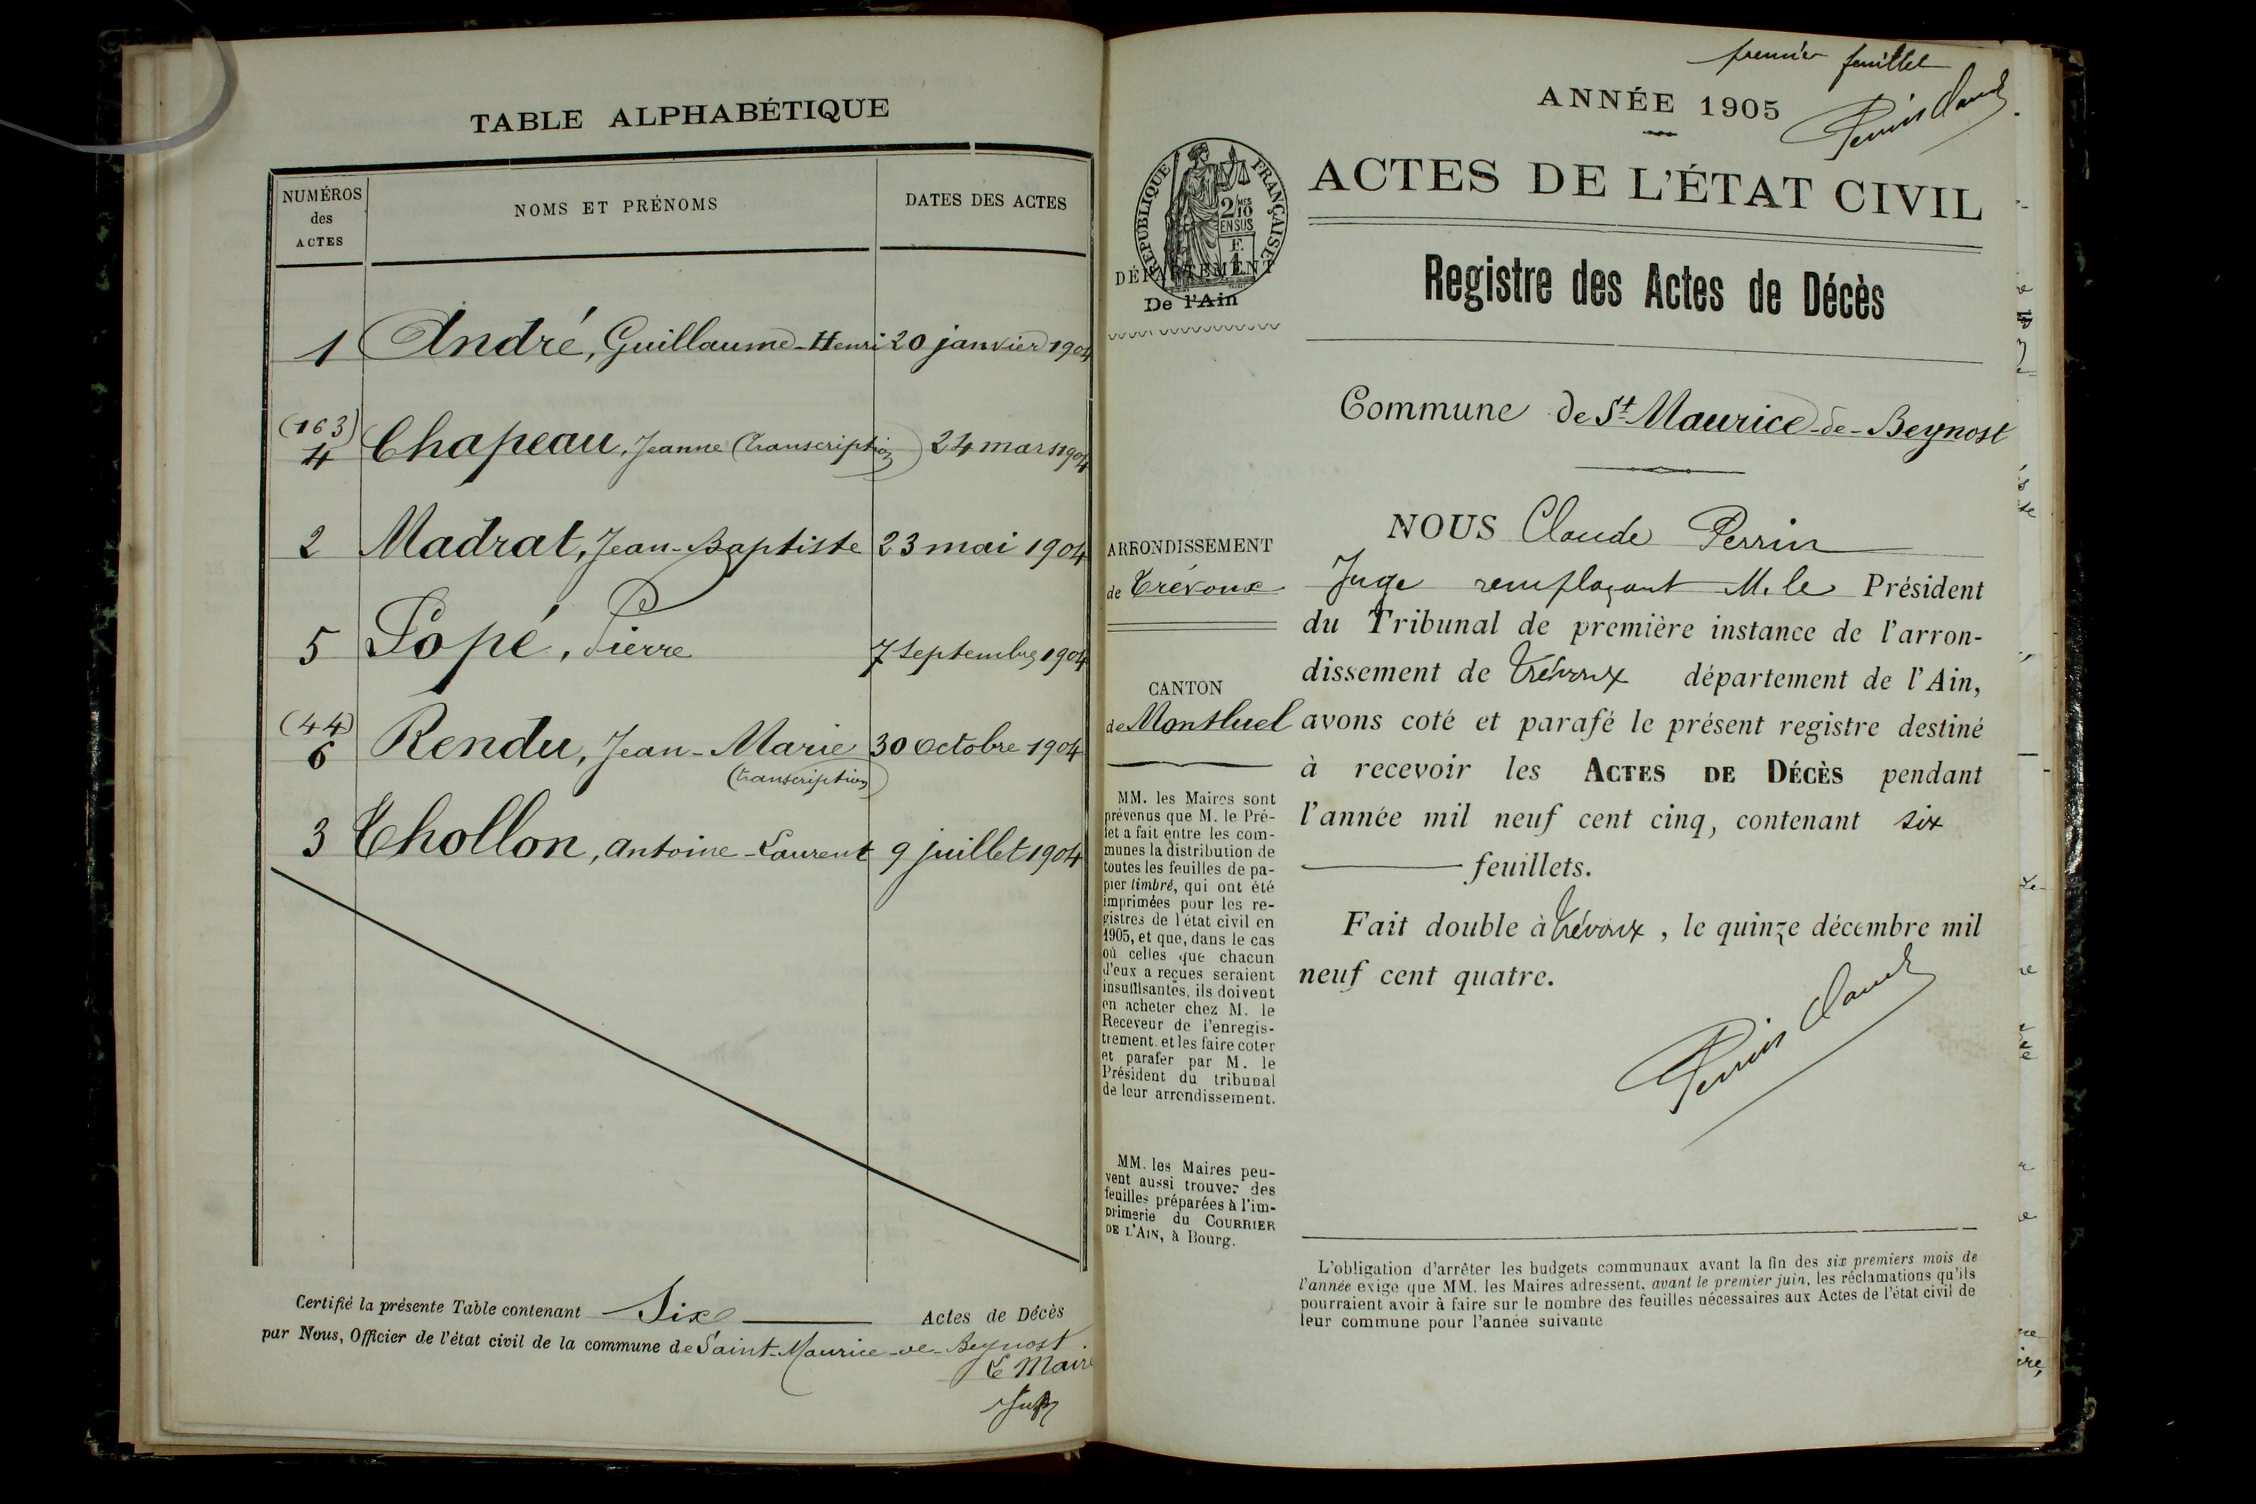 TABLE ALPHABÉTIQUE
NUMÉROS
des
ACTES
NOMS ET PRÉNOMS
DATES DES ACTES
1 André, Guillaume-Henri 20 janvier 1904
(163)
4 Chapeau, Jeanne (transcription) 24 mars 1904
2 Madrat, Jean-Baptiste 23 mai 1904
5 Popé, Pierre 7 septembre 1904
(44)
6 Rendu, Jean-Marie 30 octobre 1904
(transcription)
3 Thollon, antoine-Laurent 9 juillet 1904
Certifié la présente Table contenant Six Actes de Décès
par Nous, Officier de l'état civil de la commune de Saint-Maurice-de-Beynost
Le Maire
premier feuillet
ANNÉE 1905
Perrin Claude
ACTES DE L'ÉTAT CIVIL
RÉPUBLIQUE FRANÇAISE
2/10 MES
EN SUS
DÉPARTEMENT
De l'Ain
Registre des Actes de Décès
Commune de St-Maurice-de-Beynost
ARRONDISSEMENT
de Trévoux
CANTON
de Montluel
MM. les Maires sont
prévenus que M. le Pré-
fet a fait entre les com-
munes la distribution de
toutes les feuilles de pa-
pier timbré, qui ont été
imprimées pour les re-
gistres de l'état civil en
1905, et que, dans le cas
où celles que chacun
d'eux a reçues seraient
insuffisantes, ils doivent
en acheter chez M. le
Receveur de l'enregis-
trement. et les faire coter
et parafer par M. le
Président du tribunal
de leur arrondissement.
MM. les Maires peu-
vent aussi trouver des
feuilles préparées à l'im-
primerie du COURRIER
DE L'AIN, à Bourg.
NOUS Claude Perrin
Juge remplaçant M. le Président
du Tribunal de première instance de l'arron-
dissement de Trévoux département de l'Ain,
avons coté et parafé le présent registre destiné
à recevoir les ACTES DE DÉCÈS pendant
l'année mil neuf cent cinq, contenant six
feuillets.
Fait double à Trévoux, le quinze décembre mil
neuf cent quatre.
Perrin Claude
L'obligation d'arrêter les budgets communaux avant la fin des six premiers mois de
l'année exige que MM. les Maires adressent, avant le premier juin, les réclamations qu'ils
pourraient avoir à faire sur le nombre des feuilles nécessaires aux Actes de l'état civil de
leur commune pour l'année suivante